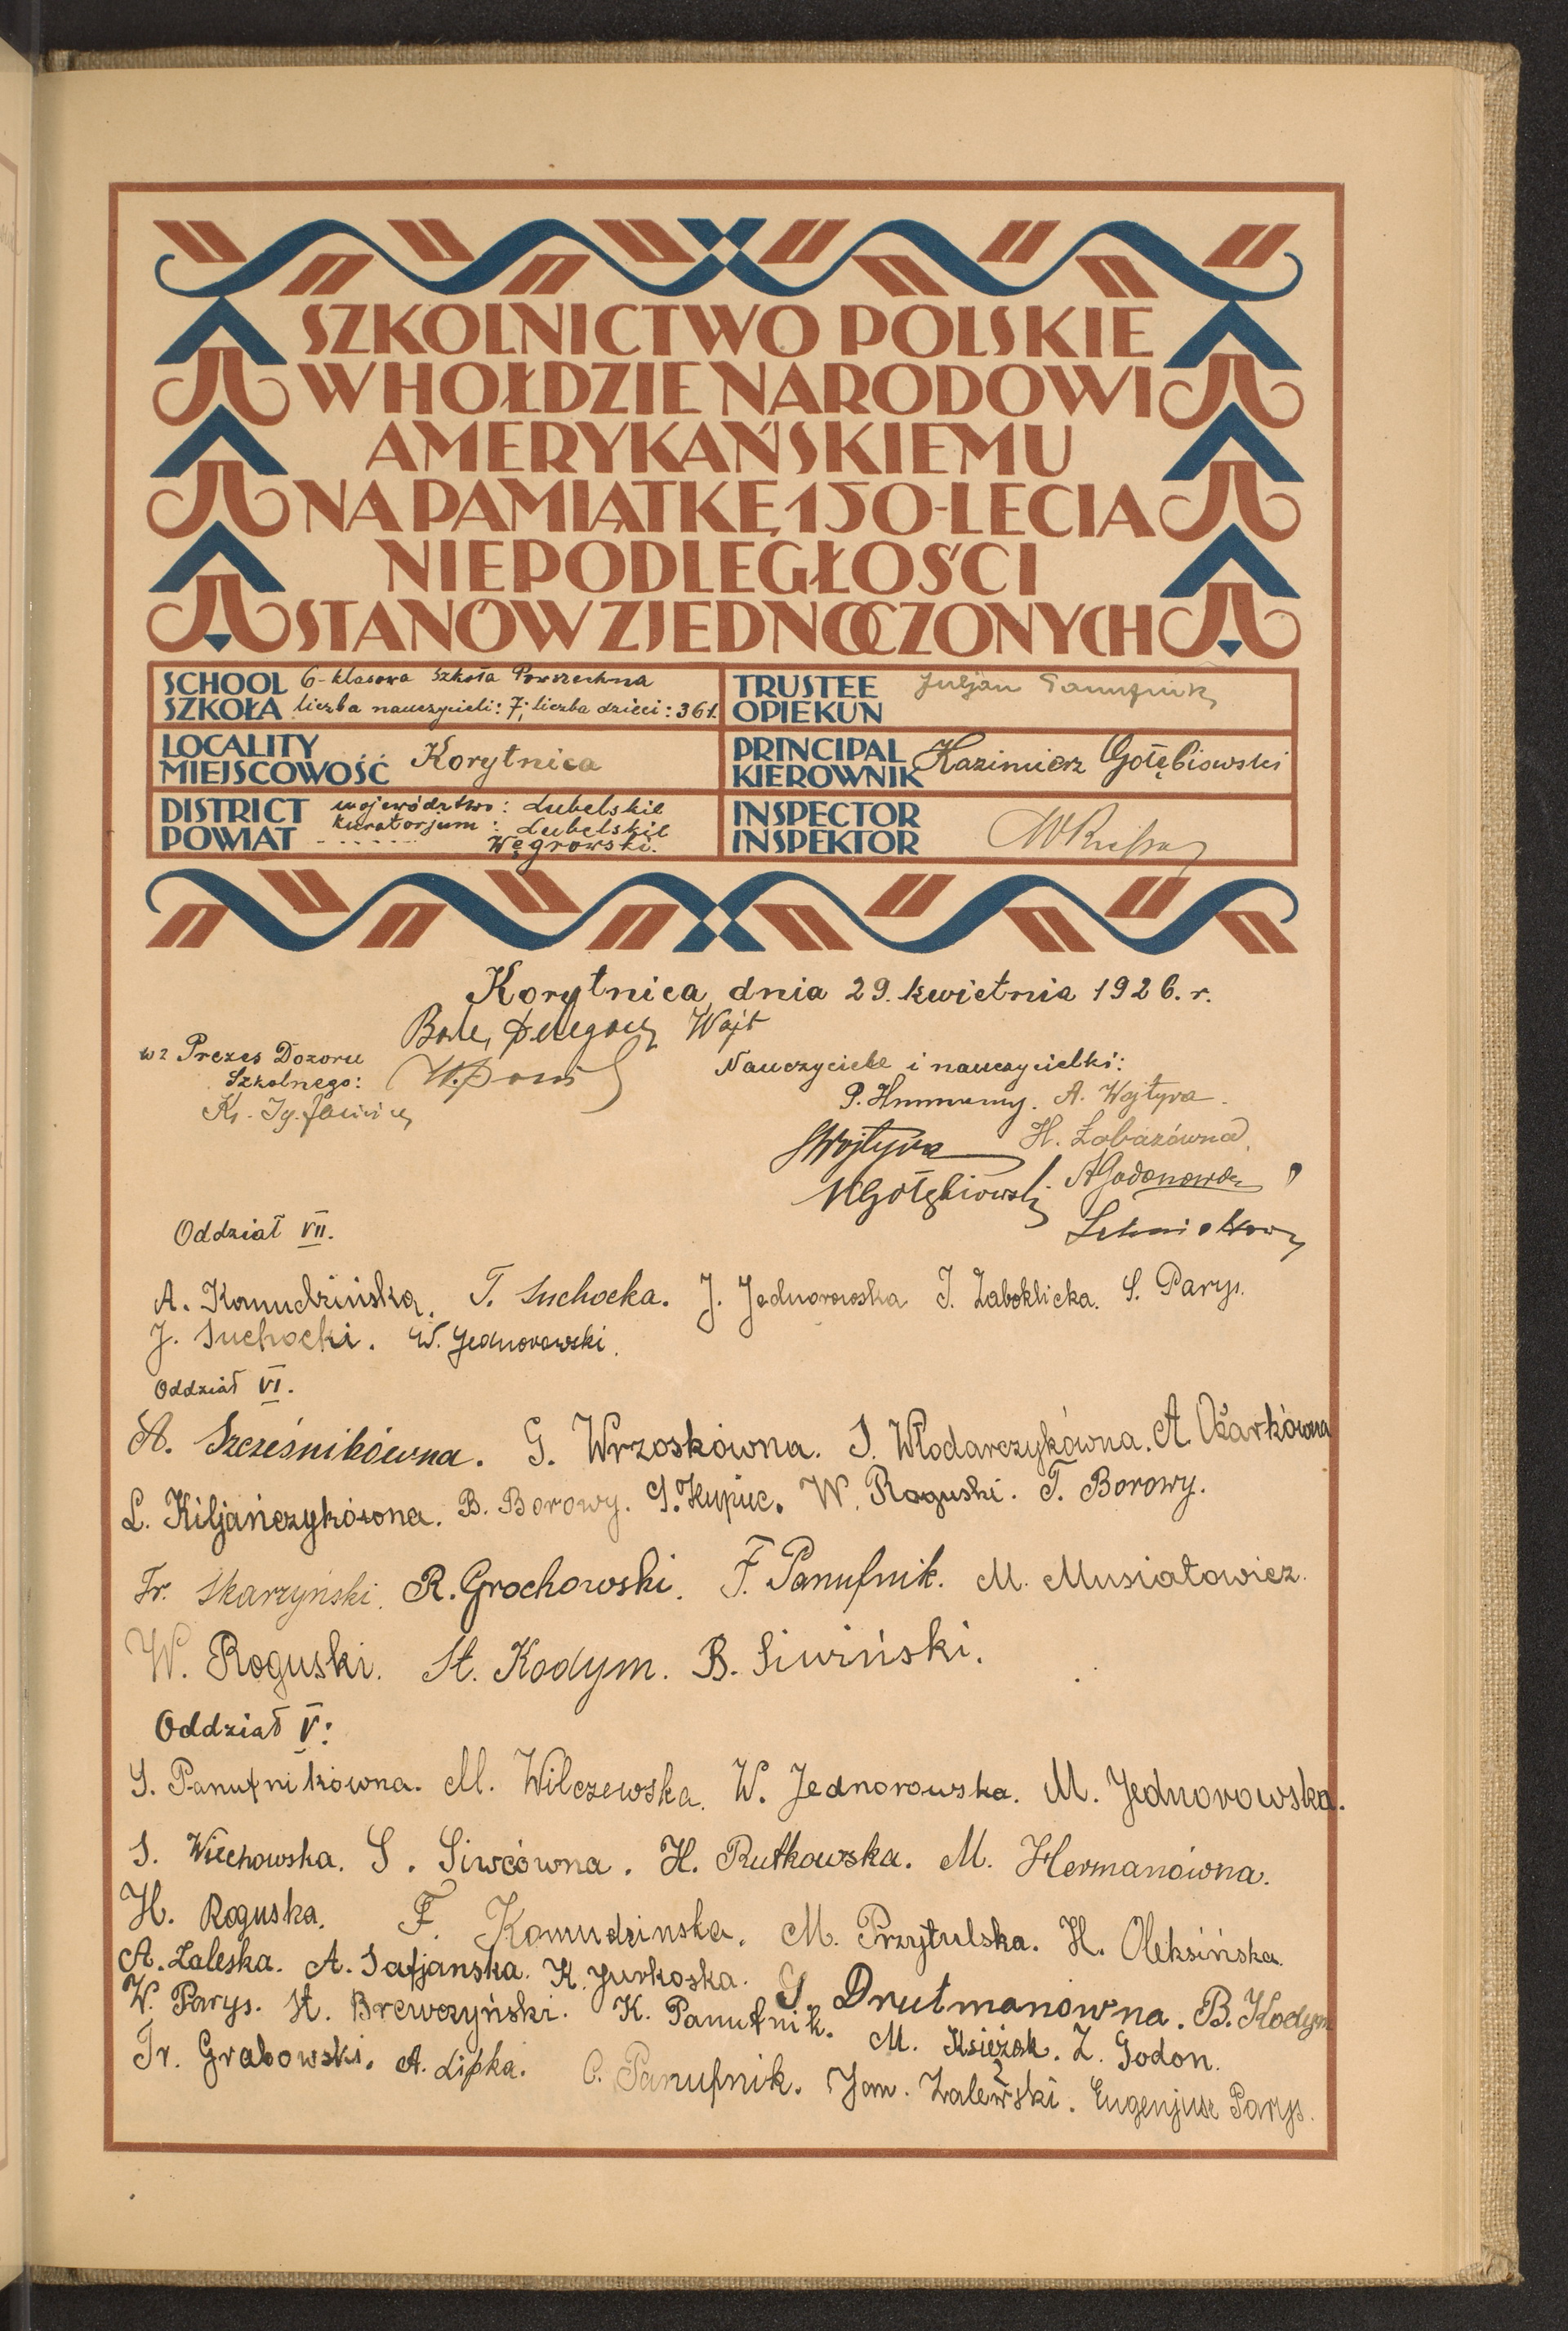 SZKOLNICTWO POLSKIE
W HOŁDZIE NARODOWI
AMERYKAŃSKIEMU
NA PAMIĄTKĘ 150-LECIA
NIEPODLEGŁOŚCI
STANÓW ZJEDNOCZONYCH
SCHOOL SZKOŁA 6-klasowa Szkoła Powszechna
liczba nauczycieli: 7; liczba dzieci: 361.
TRUSTEE OPIEKUN Juljan Panufnik
LOCALITY MIEJSCOWOŚĆ Korytnica
PRINCIPAL KIEROWNIK Kazimierz Gołębiowski
DISTRICT POWIAT województwo: Lubelskie
kuratorjum: Lubelskie
Węgrowski.
INSPECTOR INSPEKTOR
Korytnica, dnia 29. kwietnia 1926. r.
Wójt
wz Prezes Dozoru
Szkolnego:
Nauczyciele i nauczycielki:
A. Wojtyra.
SWojtyra H. Zabazówna.
KGołębiowski AGodonowa
Oddział VII.
A. Komudzińska. T. Suchocka. J. Jednorowska J. Zaboklicka. S. Parys.
J. Suchocki. W. Jednorowski.
Oddział VI.
A. Szcześnikówna. G. Wrzoskówna. J. Włodarczykówna. A. Ożarkówna
L. Kiljańczykówna. B. Borowy. S. Kupiec. W. Roguski. T. Borowy.
Fr. Skarzyński. R. Grochowski. F. Panufnik. M. Musiałowicz.
W. Roguski. St. Kodym. B. Siwiński.
Oddział V:
S. Panufnikówna. M. Wilczewska. W. Jednorowska. M. Jednorowska.
S. Wiechowska. S. Siwcówna. H. Rutkowska. M. Hermanówna.
H. Roguska. F. Komudzinska. M. Przytulska. H. Oleksińska.
A. Zaleska. A. Safjanska. K. Jurkoska. G Drutmanówna. B. Kodym
W. Parys. St. Brewczyński. K. Panufnik. M. Ksiežak. Z. Godon.
Fr. Grabowski. A. Lipka. C. Panufnik. Jan. Zalewski. Eugenjusz Parys.